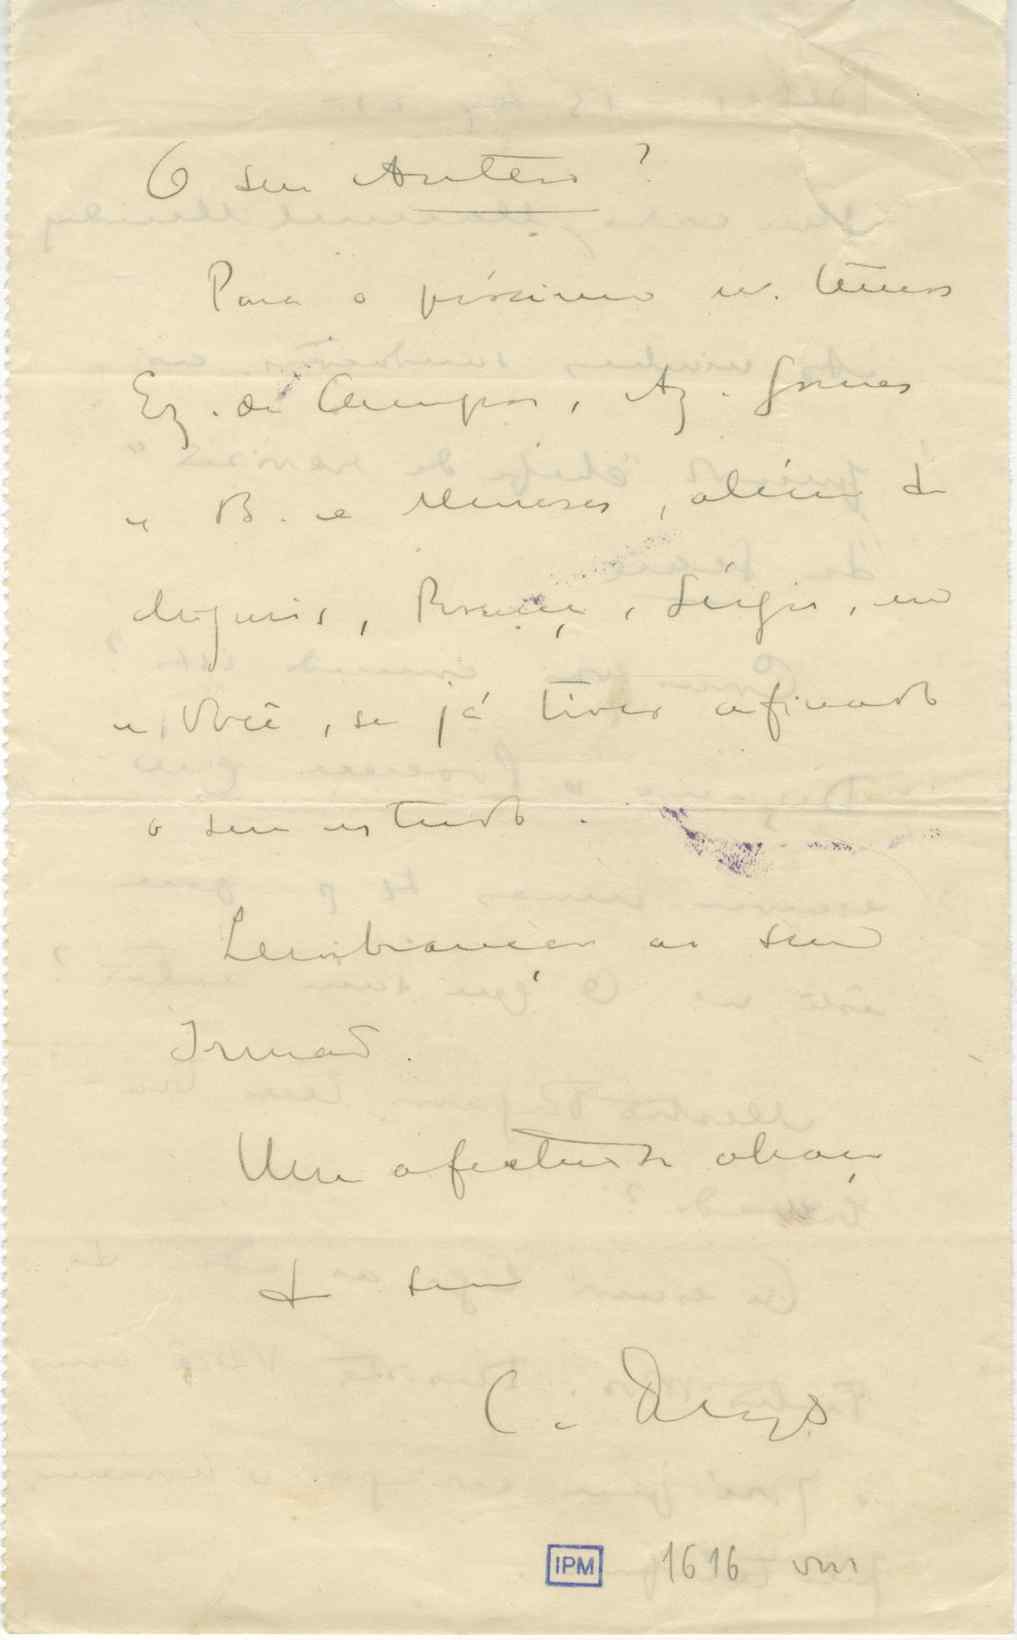 O seu Antero?
Para o próximo n. temos
Ez. de Campos, Az. Gomes
e B. e Meneses, além de
depois, Proença, Sérgio, eu
e Você, se já tiver afinado
o seu estudo.
Lembranças ao seu
Irmão.
Um afectuoso abraço
de seu
C.
IPM 1616 VIII